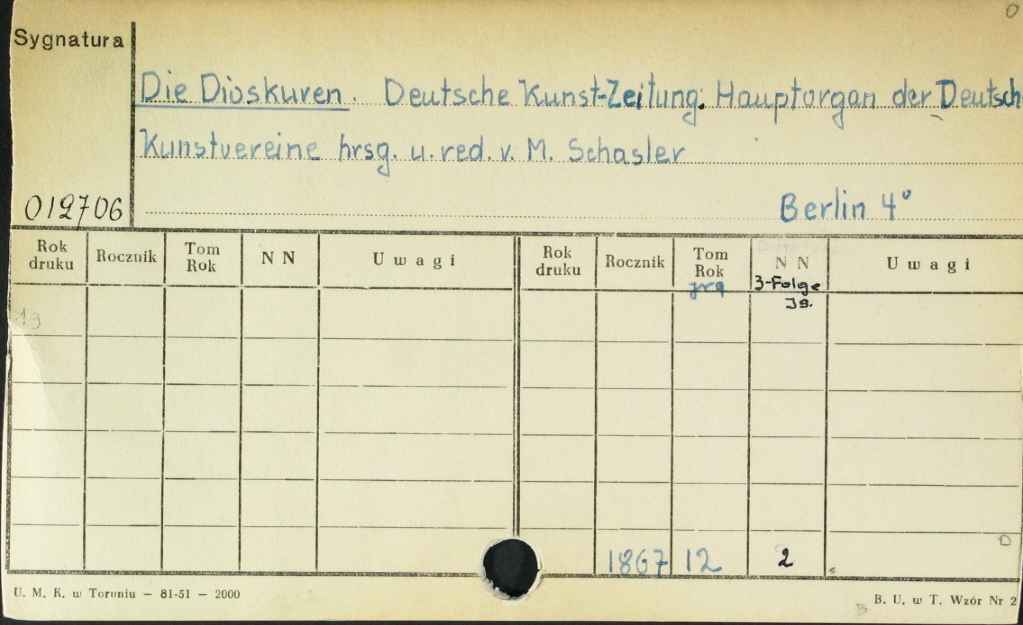 0
Sygnatura
Die Dioskuren. Deutsche Kunst-Zeitung. Hauptorgan der Deutsch
Kunstvereine hrsg. u. red. v. M. Schasler
012706
Berlin 4°
Rok druku Rocznik Tom Rok N N Uwagi Rok druku Rocznik Tom Rok N N Uwagi
jrg 3-Folge
Js.
19
1867 12 2
U. M. K. w Toruniu — 81-51 — 2000
B. U. w T. Wzór Nr 2